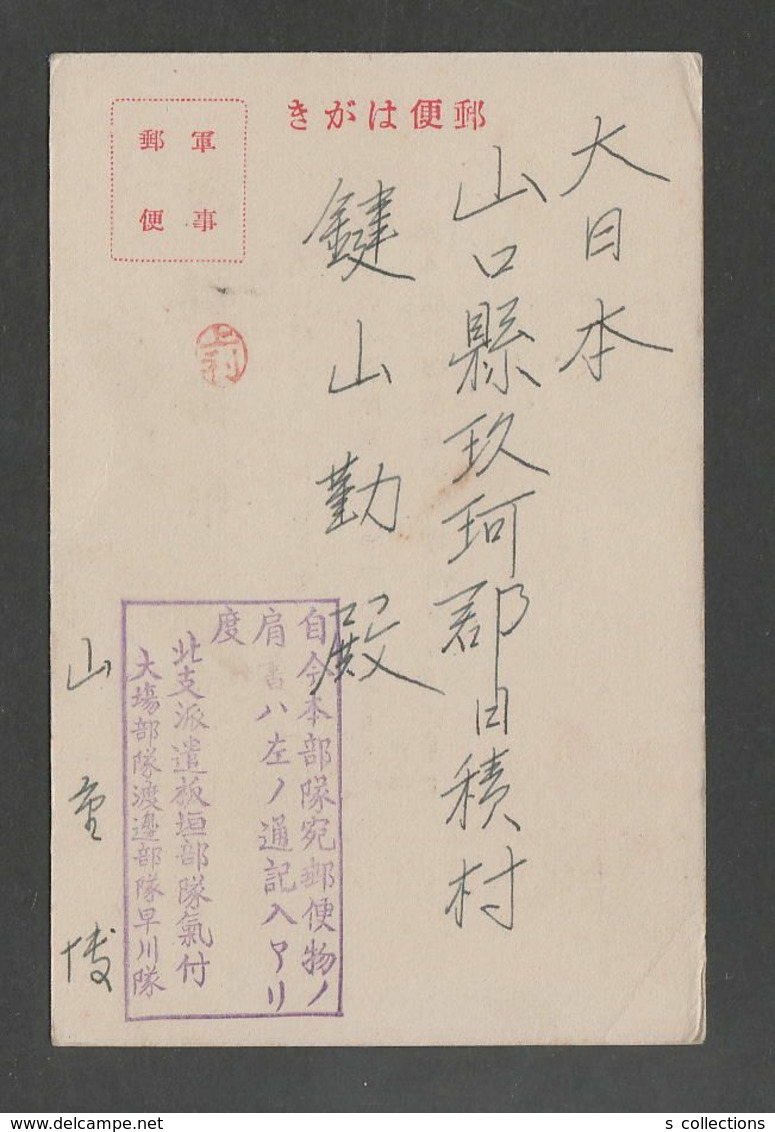 郵便はがき
軍事
郵便
大日本
山口縣玖珂郡日積村
鍵山勤殿
上利
自今本部隊宛郵便物ノ
肩書ハ左ノ通記入アリ
度
北支派遣板垣部隊氣付
大場部隊渡邊部隊早川隊
山重博
www.delcampe.net
s collections